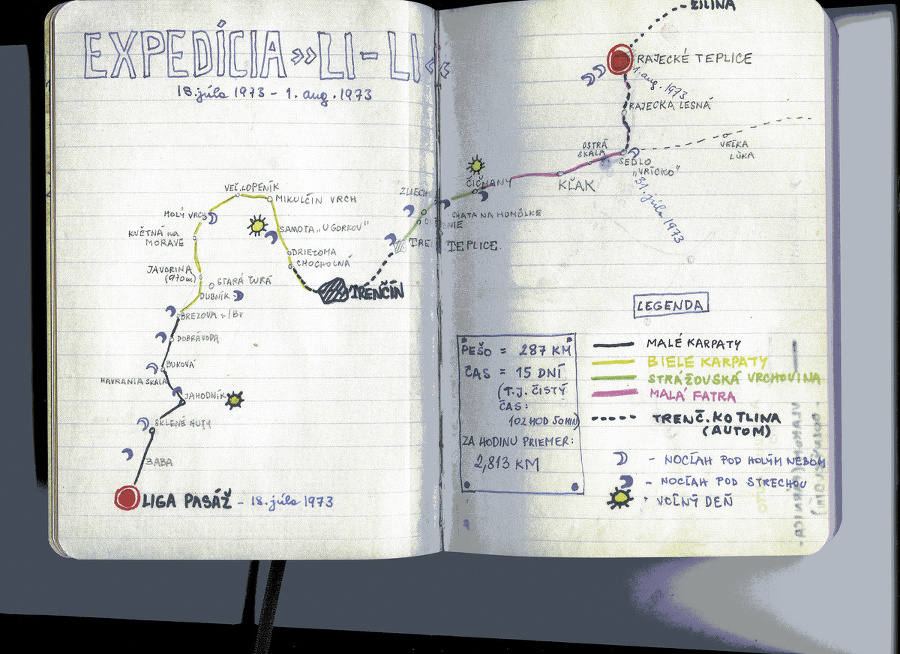 EXPEDÍCIA »LI-LI«
18. júla 1973 - 1. aug. 1973
ŽILINA
RAJECKÉ TEPLICE
1. aug. 1973
RAJECKÁ LESNÁ
OSTRÁ
SKALA
SEDLO
"VRÍČKO"
31. júla 1973
VEĽKÁ
LÚKA
ČIČMANY
KĽAK
ZLIECH
CHATA NA HOMÔLKE
TEPLICE
VEĽ. LOPENÍK
MIKULČIN VRCH
HOLÝ VRCH
SAMOTA "U GORKOV"
KVĚTNÁ na
MORAVE
DRIETOMA
CHOCHOLNÁ
TRENČÍN
JAVORINA
(970m)
STARÁ TURÁ
DUBNÍK
BREZOVÁ
DOBRÁ VODA
BUKOVÁ
HAVRANIA SKALA
JAHODNÍK
SKLENÉ HUTY
BABA
LIGA PASÁŽ - 18. júla 1973
PEŠO = 287 KM
ČAS = 15 DNÍ
(T.J. ČISTÝ
ČAS:
102 HOD 50 MIN)
ZA HODINU PRIEMER:
2,813 KM
LEGENDA
MALÉ KARPATY
BIELE KARPATY
STRÁŽOVSKÁ VRCHOVINA
MALÁ FATRA
TRENČ. KOTLINA
(AUTOM)
- NOCĽAH POD HOLÝM NEBOM
- NOCĽAH POD STRECHOU
- VOĽNÝ DEŇ